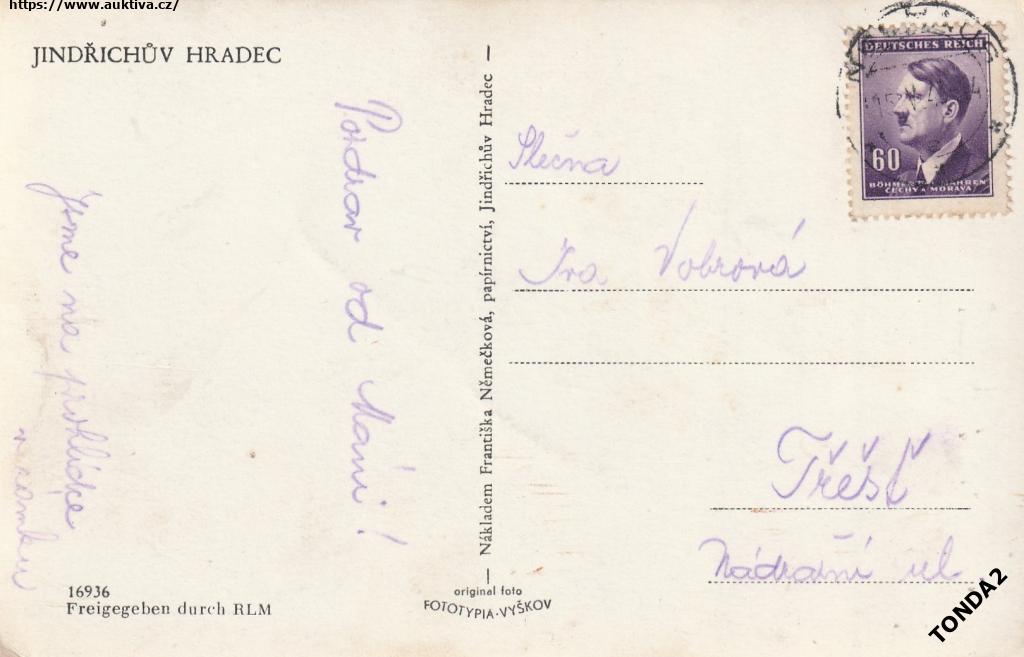 https://www.auktiva.cz/
JINDŘICHŮV HRADEC
Pozdrav od Máni!
Jsme na prohlídce
v zámku
16936
Freigegeben durch RLM
Nákladem Františka Němečková, papírnictví, Jindřichův Hradec
original foto
FOTOTYPIA-VYŠKOV
DEUTSCHES REICH
60
BÖHMEN U. MÄHREN
ČECHY A MORAVA
Slečna
Iva Vobrová
Třešť
Nádražní ul.
TONDA2